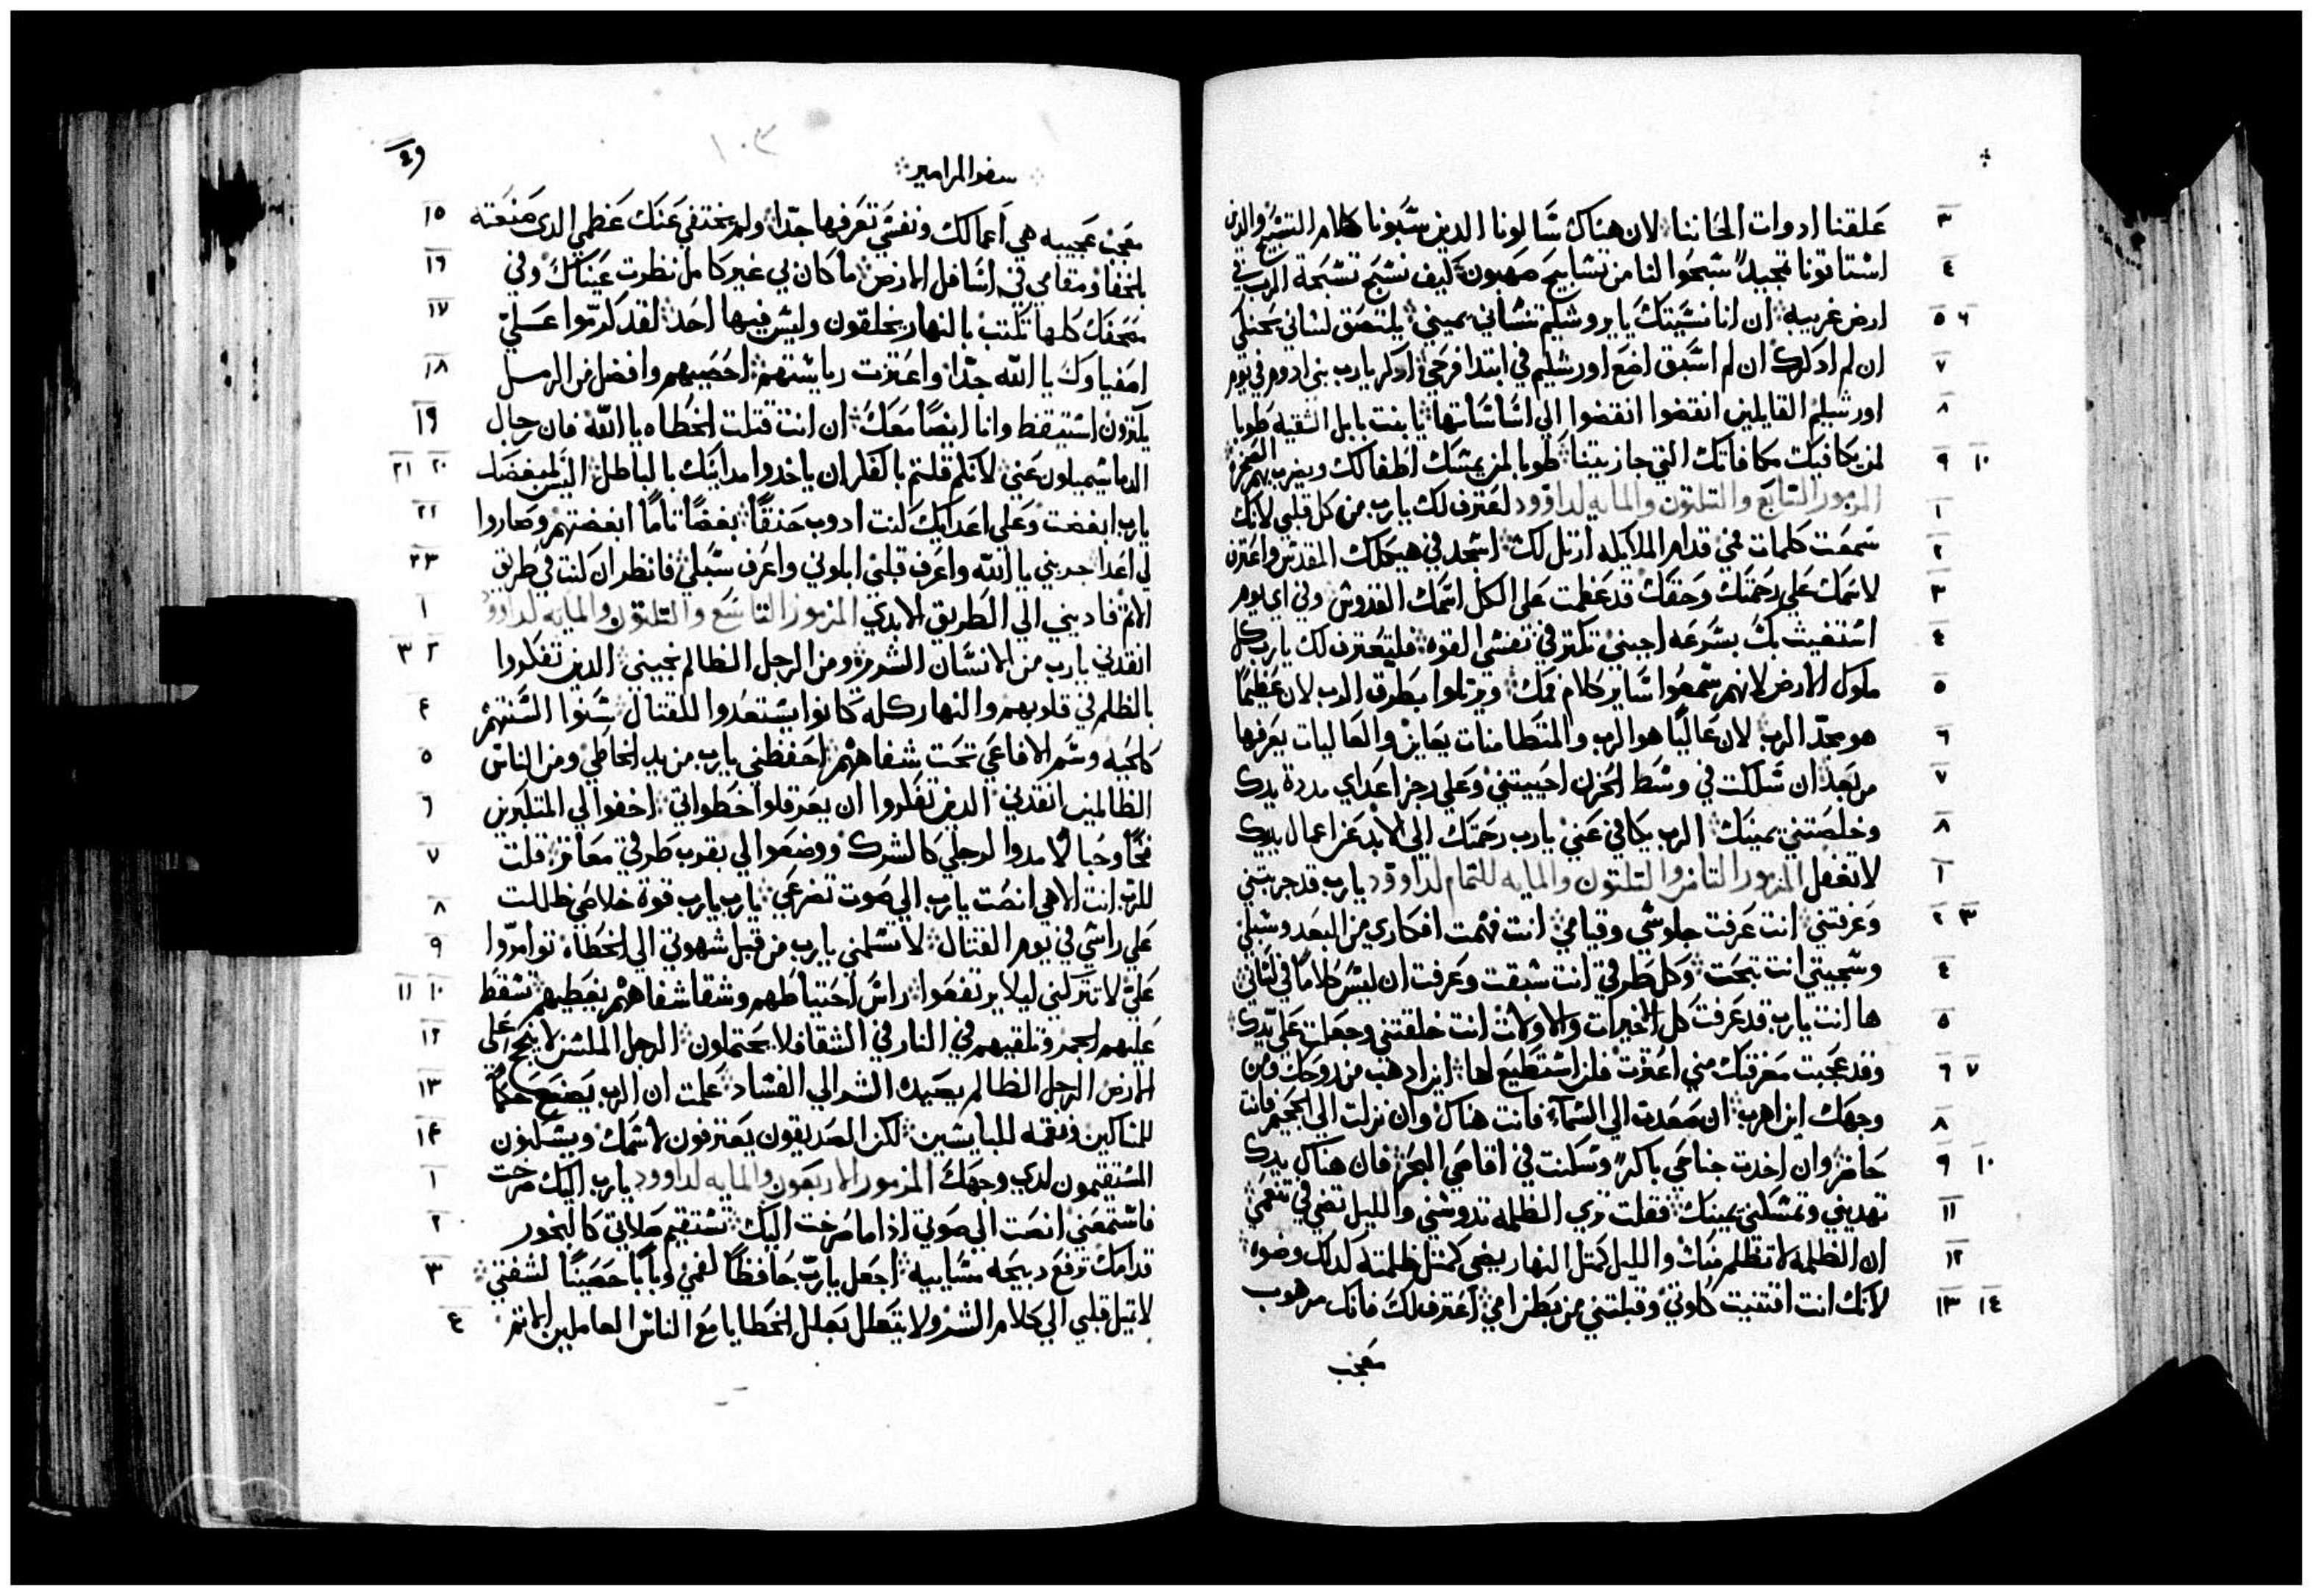 ٣ علقنا ادوات الحاننا لان هناك سالونا الدين سبونا كلام التسبيح والدين
٤ استاقونا تمجيداً سبحوا لنا من تسابيح صهيون كيف نسبح تسبحة الرب في
٥ ٦ ارض غريبه ان انا نسيتك يا يروشليم تنساني يميني يلتصق لساني بحنكي
٧ ان لم ادكرك ان لم اسبق اضع اورشليم في ابتدا فرحي ادكر يارب بني ادوم في يوم
٨ اورشليم القايلين انقضوا انقضوا الي اساساتها يا بنت بابل الشقيه طوبا
٩ ١٠ لمن يكافيك مكافاتك التي جازيتينا طوبا لمن يمسك اطفالك ويضرب بهم الصخره
١ المزمور السابع والتلتون والمايه لداوود لعترف لك يارب من كل قلبي لانك
٢ سمعت كلمات فمي قدام الملايكه ارتل لك اسجد في هيكلك المقدس واعترف
٣ لاسمك علي رحمتك وحقك قد عظمت علي الكل اسمك القدوس وفي اي يوم
٤ استغيث بك بسرعه اجبني تكتر في نفسي القوه فليعترف لك يارب كل
٥ ملوك الارض لانهم سمعوا ساير كلام فمك ويرتلوا بطرق الرب لان عظيماً
٦ هو مجد الرب لان عالياً هو الرب والمتطامنات يعاين والعاليات يعرفها
٧ من بعد ان سلكت في وسط الحزن احييتني وعلي رجز اعداي مددة يدك
٨ وخلصتني يمينك الرب يكافي عني يارب رحمتك الي الابد عن اعمال يديك
١ لا تغفل المزمور التامن والتلتون والمايه للتمام لداوود يارب قد جربتني
٢ ٣ وعرفتني انت عرفت جلوسي وقيامي انت فهمت افكاري من البعد وسبلي
٤ وسجيتي انت بحت وكل طرقي انت سبقت وعرفت ان ليس كلاماً في لساني
٥ ها انت يارب قد عرفت كل الاخيرات والاولات انت خلقتني وجعلت علي يدك
٦ ٧ وقد عجبت معرفتك مني اعتزت فلن استطيع لها اين ادهب من روحك ومن
٨ وجهك اين اهرب ان صعدت الي السماء فانت هناك وان نزلت الي الجحيم فانت
٩ ١٠ حاضر وان اخدت جناحي باكراً وسكنت في اقاصي البحر فان هناك يدك
١١ تهديني وتمسكني يمينك فقلت تري الظلمه تدوسني والليل تضي في تنعمي
١٢ ان الظلمه لا تظلم منك والليل كمتل النهار يضي كمتل ظلمته كدلك وضوه
١٣ ١٤ لانك انت اقتنيت كلوتي وقبلتني من بطن امي اعترف لك فانك مرهوب
معجب
سفر المزامير
١٠٣
١٥ معجب عجيبه هي اعمالك ونفسي تعرفها جدّا ولم يختفي عنك عظمي الدي صنعته
١٦ بالخفا ومقامي في اسافل الارض ما كان لي غير كامل نظرت عيناك وفي
١٧ مصحفك كلها تكتب بالنهار يخلقون وليس فيها احد لقد كرموا علي
١٨ اصفياوك يا الله جدّا واعتزت رياستهم احصيهم وافضل من الرمل
١٩ يكترون استيقظ وانا ايضاً معك ان انت قتلت الخطاه يا الله فان رجال
٢٠ ٢١ الدما يميلون عني لانكم قلتم بالفكر ان ياخدوا مداينك بالباطل اليس لمبغضيك
٢٢ يارب ابغضت وعلي اعدايك كنت ادوب حنقاً بغضاً تاماً ابغضتهم وصاروا
٢٣ لي اعدا جربني يا الله واعرف قلبي ابلوني واعرف سبلي فانظر ان كنت في طريق
١ الاتم فاديني الي الطريق الابدي المزمور التاسع والتلتون والمايه لداوود
٢ ٣ انقدني يارب من الانسان الشرير ومن الرجل الظالم نجيني الدين تفكروا
٤ بالظلم في قلوبهم والنهار كله كانوا يستعدوا للقتال سنوا السنتهم
٥ كالحيه وسم الافاعي تحت شفاههم احفظني يارب من يد الخاطي ومن الناس
٦ الظالمين انقدني الدين تفكروا ان يعرقلوا خطواتي اخفوا لي المتكبرين
٧ فخاً وحبالاً مدوا لرجلي كالشرك ووضعوا لي بقرب طرقي معاتر قلت
٨ للرب انت الاهي انصت يارب الي صوت تضرعي يارب يارب قوة خلاصي ظللت
٩ علي راسي في يوم القتال لا تسلمني يارب من قبل شهوتي الي الخطاه توامروا
١٠ ١١ علي لا تتركني ليلا يرتفعوا راس احتياطهم وشقا شفاههم يغطيهم تسقط
١٢ عليهم الجمر وتلقيهم في النار في الشقا فلا يحتملون الرجل الملسن لا ينجح علي
١٣ الارض الرجل الظالم يصيده الشر الي الفساد علمت ان الرب يصنع حكماً
١٤ للمساكين ونقمه للبايسين لكن الصديقون يعترفون لاسمك ويسكنون
١ المستقيمون لدي وجهك المزمور الاربعون والمايه لداوود يارب اليك صرخت
٢ فاستمعني انصت الي صوتي ادا ما صرخت اليك تستقيم صلاتي كالبخور
٣ قدامك ترفع دبيحه مسايبه اجعل يارب حافظاً لفمي وباباً حصيناً لشفتي
٤ لا تميل قلبي الي كلام الشر ولا يتعلل بعلل الخطايا مع الناس العاملين الاتم